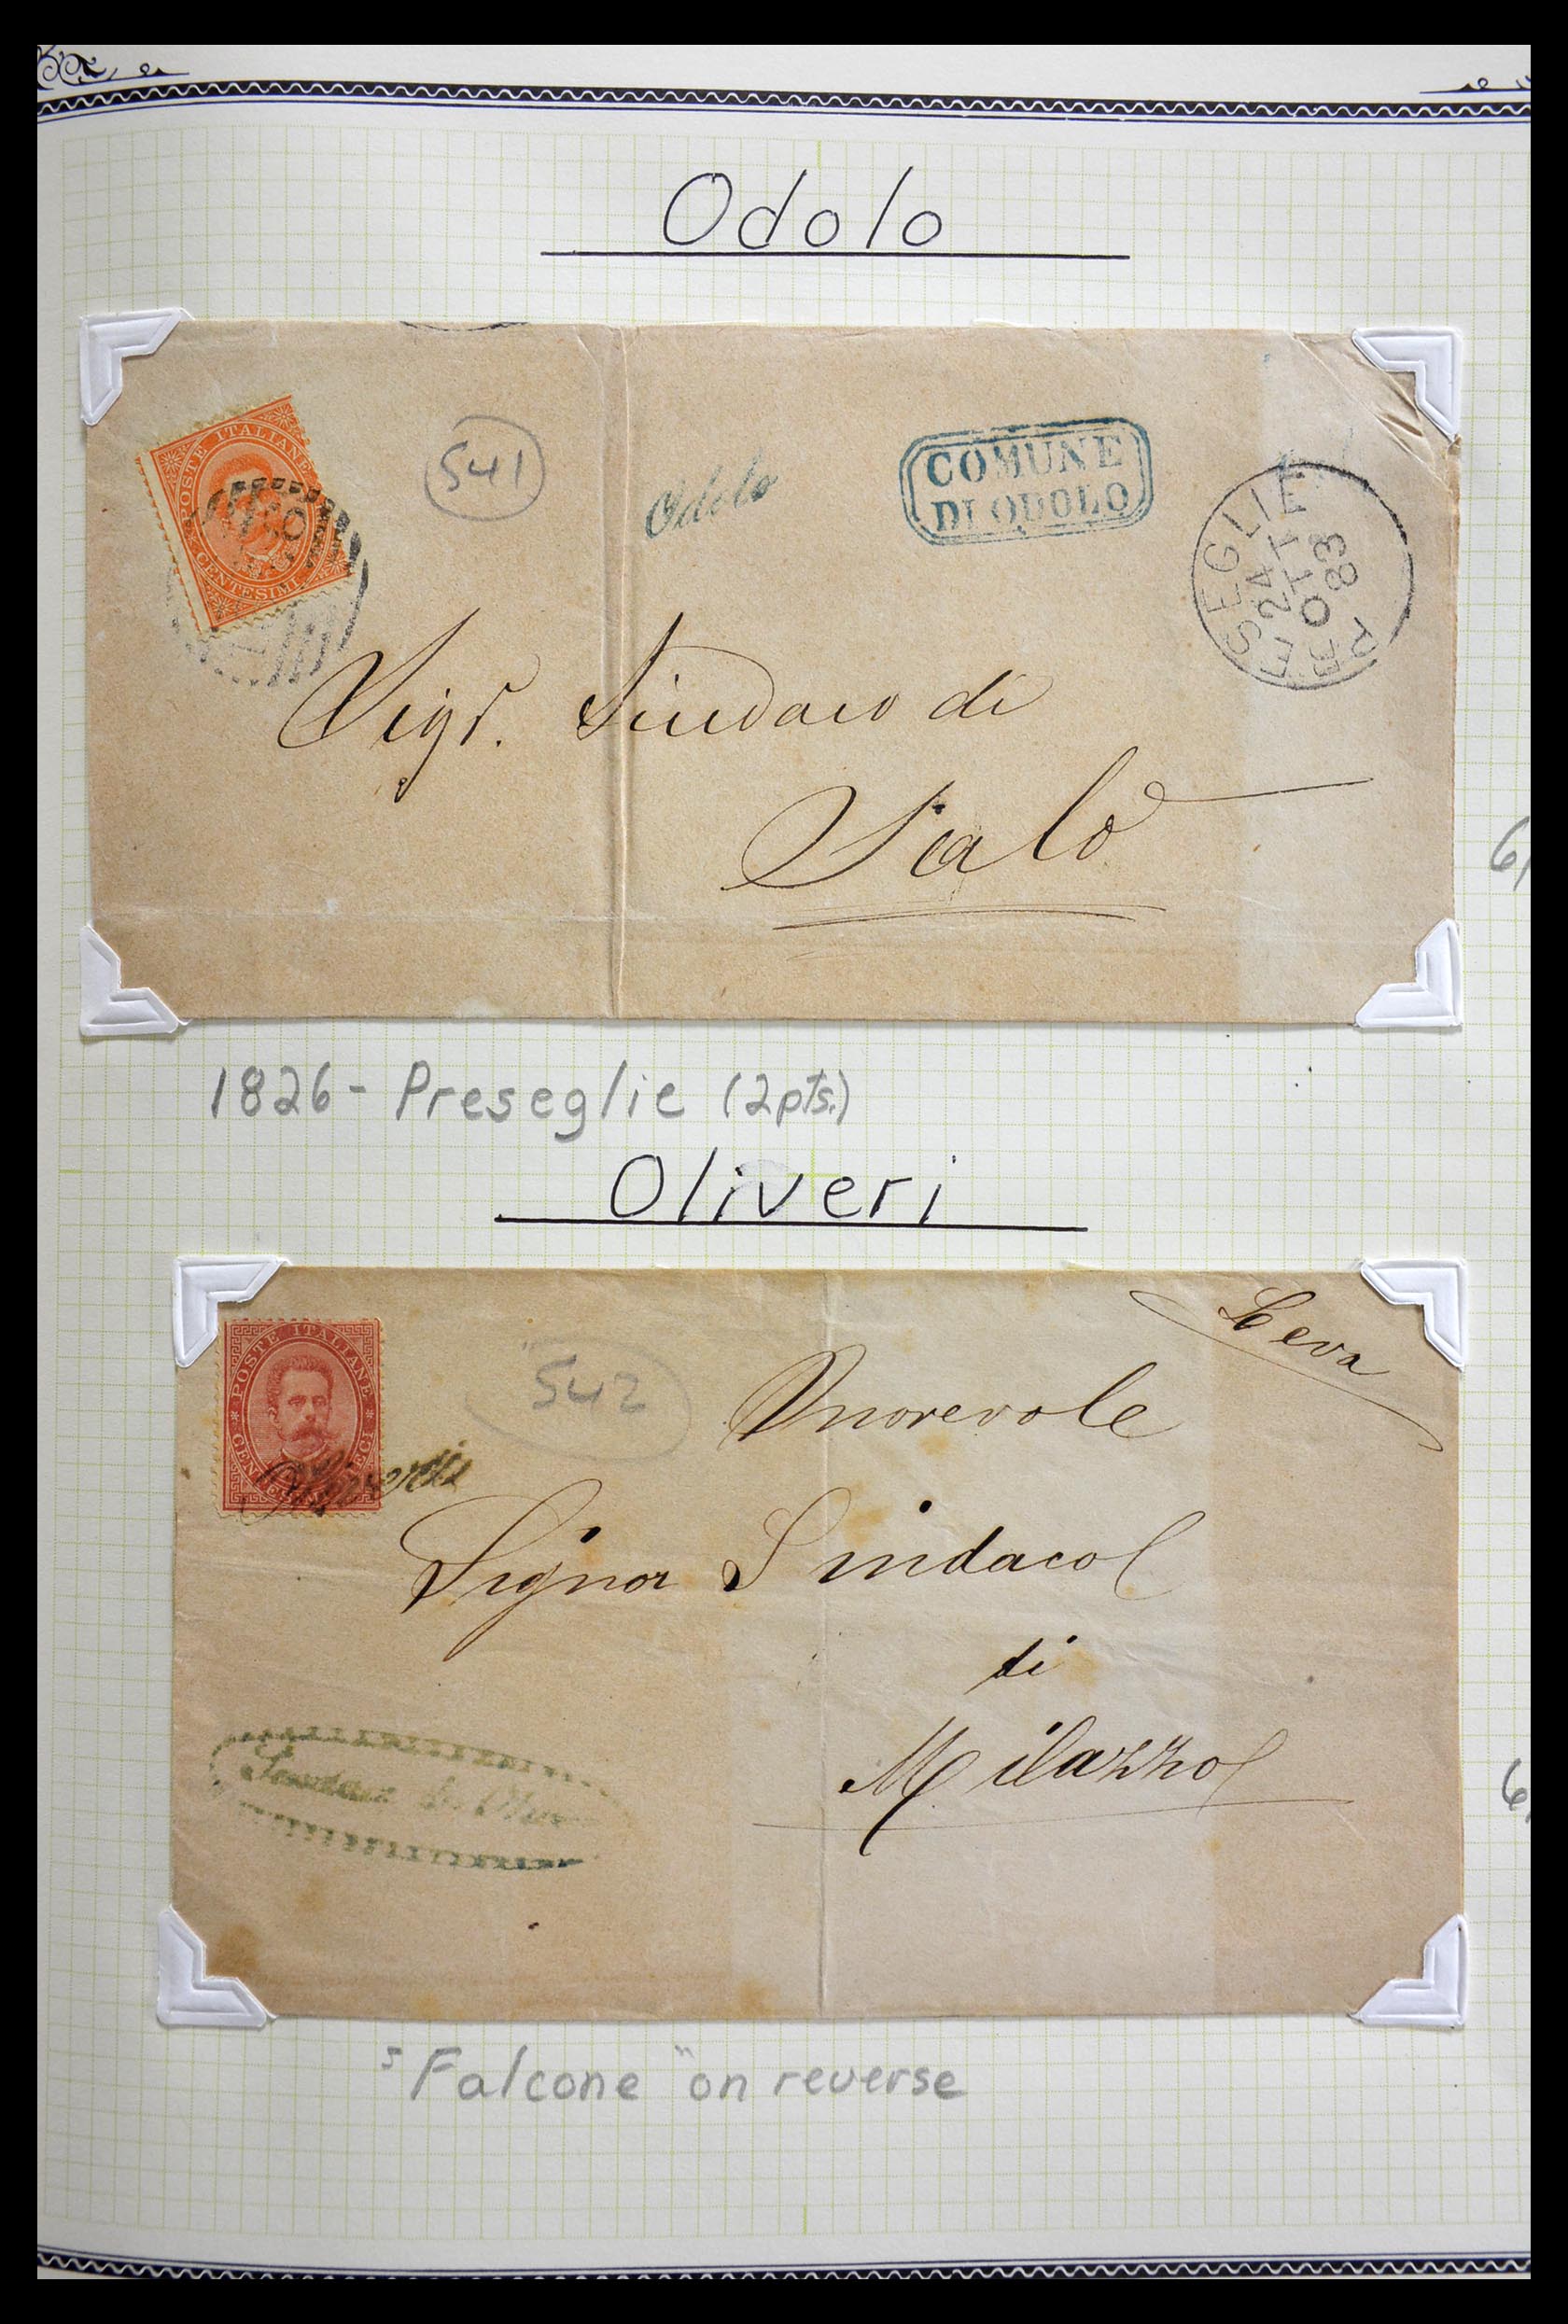 Odolo
POSTE ITALIANE
CENTESIMI
541
Odolo
COMUNE
DI ODOLO
PRESEGLIE
24
OTT
83
Sigr. Sindaco di
Salò
6
1826 - Preseglie (2pts.)
Oliveri
Leva
POSTE ITALIANE
542
Onorevole
Signor Sindaco
di
Milazzo
6
"Falcone" on reverse